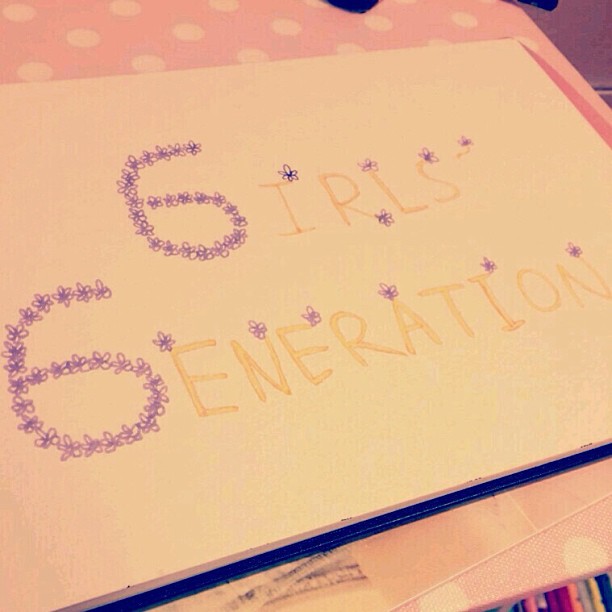 GIRLS'
GENERATION